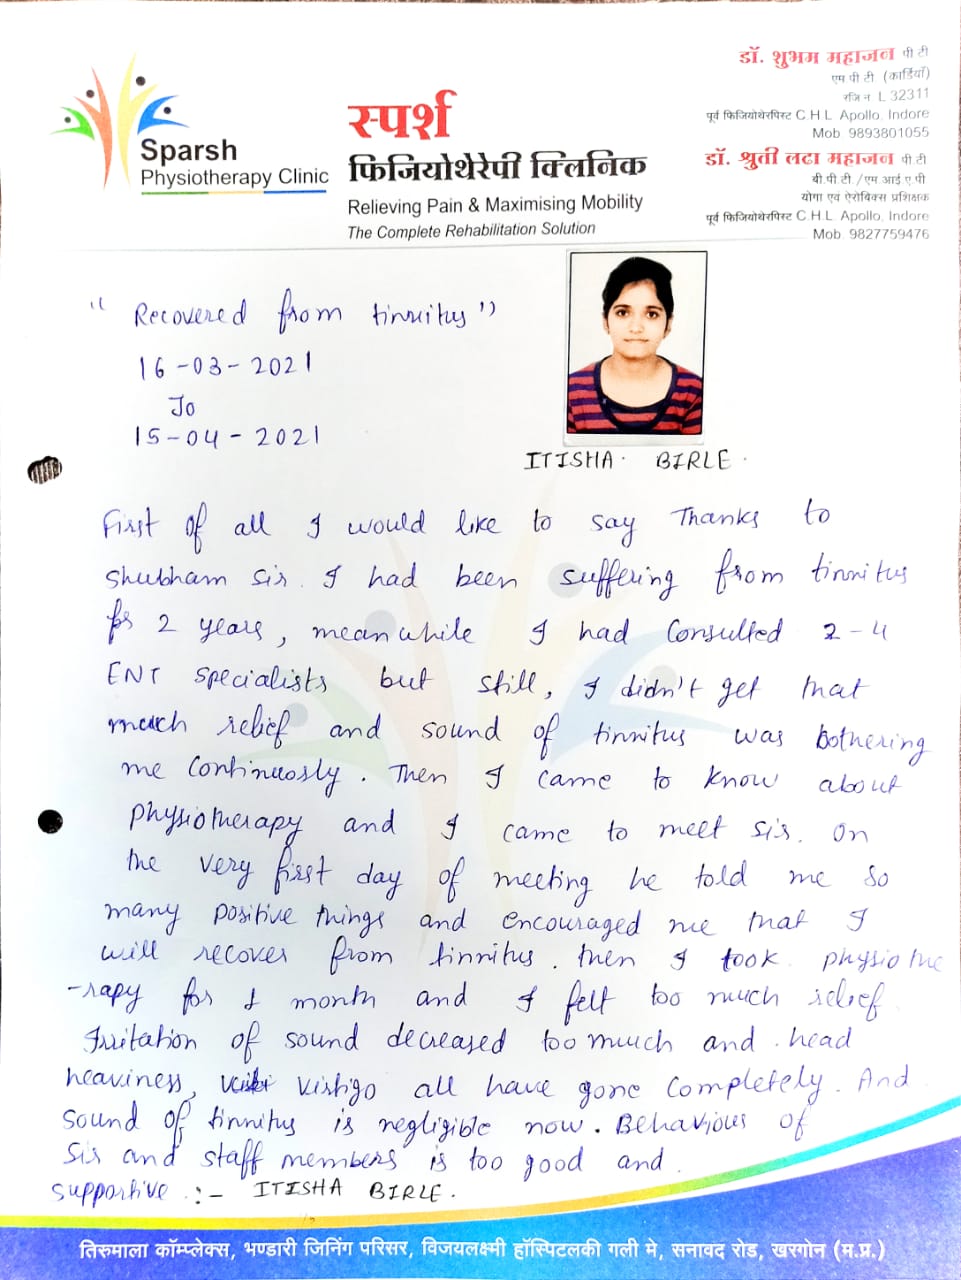 Sparsh
Physiotherapy Clinic
स्पर्श
फिजियोथेरेपी क्लिनिक
Relieving Pain & Maximising Mobility
The Complete Rehabilitation Solution
डॉ. शुभम महाजन पी टी
एम पी टी (कार्डियो)
रजि न L 32311
पूर्व फिजियोथेरपिस्ट C.H.L. Apollo, Indore
Mob. 9893801055
डॉ. श्रुती लटा महाजन पी.टी
बी.पी.टी./एम.आई.ए.पी
योगा एवं ऐरोबिक्स प्रशिक्षक
पूर्व फिजियोथेरपिस्ट C.H.L. Apollo, Indore
Mob. 9827759476
"Recovered from tinnitus"
16-03-2021
To
15-04-2021
ITISHA BIRLE.
First of all I would like to say Thanks to
Shubham sir. I had been suffering from tinnitus
for 2 years, meanwhile I had Consulted 2-4
ENT specialists but still, I didn't get that
much relief and sound of tinnitus was bothering
me Continuosly. Then I came to know about
physiotherapy and I came to meet sir. On
the very first day of meeting he told me so
many positive things and encouraged me that I
will recover from tinnitus. then I took physiothe
-rapy for 1 month and I felt too much relief.
Irritation of sound decreased too much and head
heaviness, Virtigo all have gone completely. And
sound of tinnitus is negligible now. Behaviour of
Sir and staff members is too good and
supportive :- ITISHA BIRLE.
तिरुमाला कॉम्प्लेक्स, भण्डारी जिनिंग परिसर, विजयलक्ष्मी हॉस्पिटलकी गली मे, सनावद रोड, खरगोन (म.प्र.)